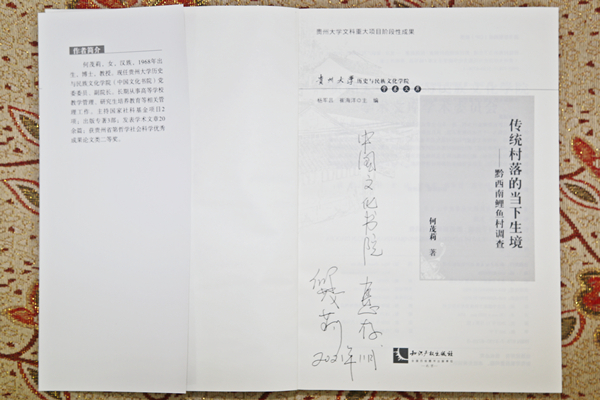 作者简介
何茂莉，女，汉族，1968年出
生，博士，教授，现任贵州大学历史
与民族文化学院（中国文化书院）党
委委员、副院长。长期从事高等学校
教学管理、研究生培养教育等相关管
理工作。主持国家社科基金项目2
项；出版专著3部；发表学术文章20
余篇；获贵州省第哲学社会科学优秀
成果论文类二等奖。
贵州大学文科重大项目阶段性成果
贵州大学历史与民族文化学院
学术文库
杨军昌 崔海洋 主 编
传统村落的当下生境
——黔西南鲤鱼村调查
何茂莉 著
中国文化书院
惠存
何茂莉
2021年
知识产权出版社